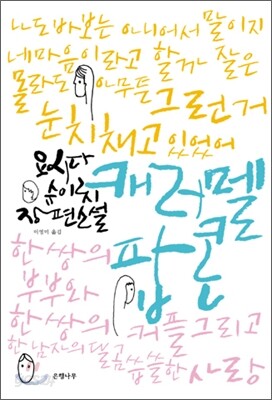 나도 바보는 아니어서 말이지
네 마음이라고 할까 잘은
몰라도 아무튼 그런 거
눈치채고 있었어
요시다
슈이치
장편소설
이영미 옮김
캐러멜
팝콘
한 쌍의
부부와
한 쌍의 커플 그리고
한 남자의 달콤 쌉쌀한 사랑
은행나무